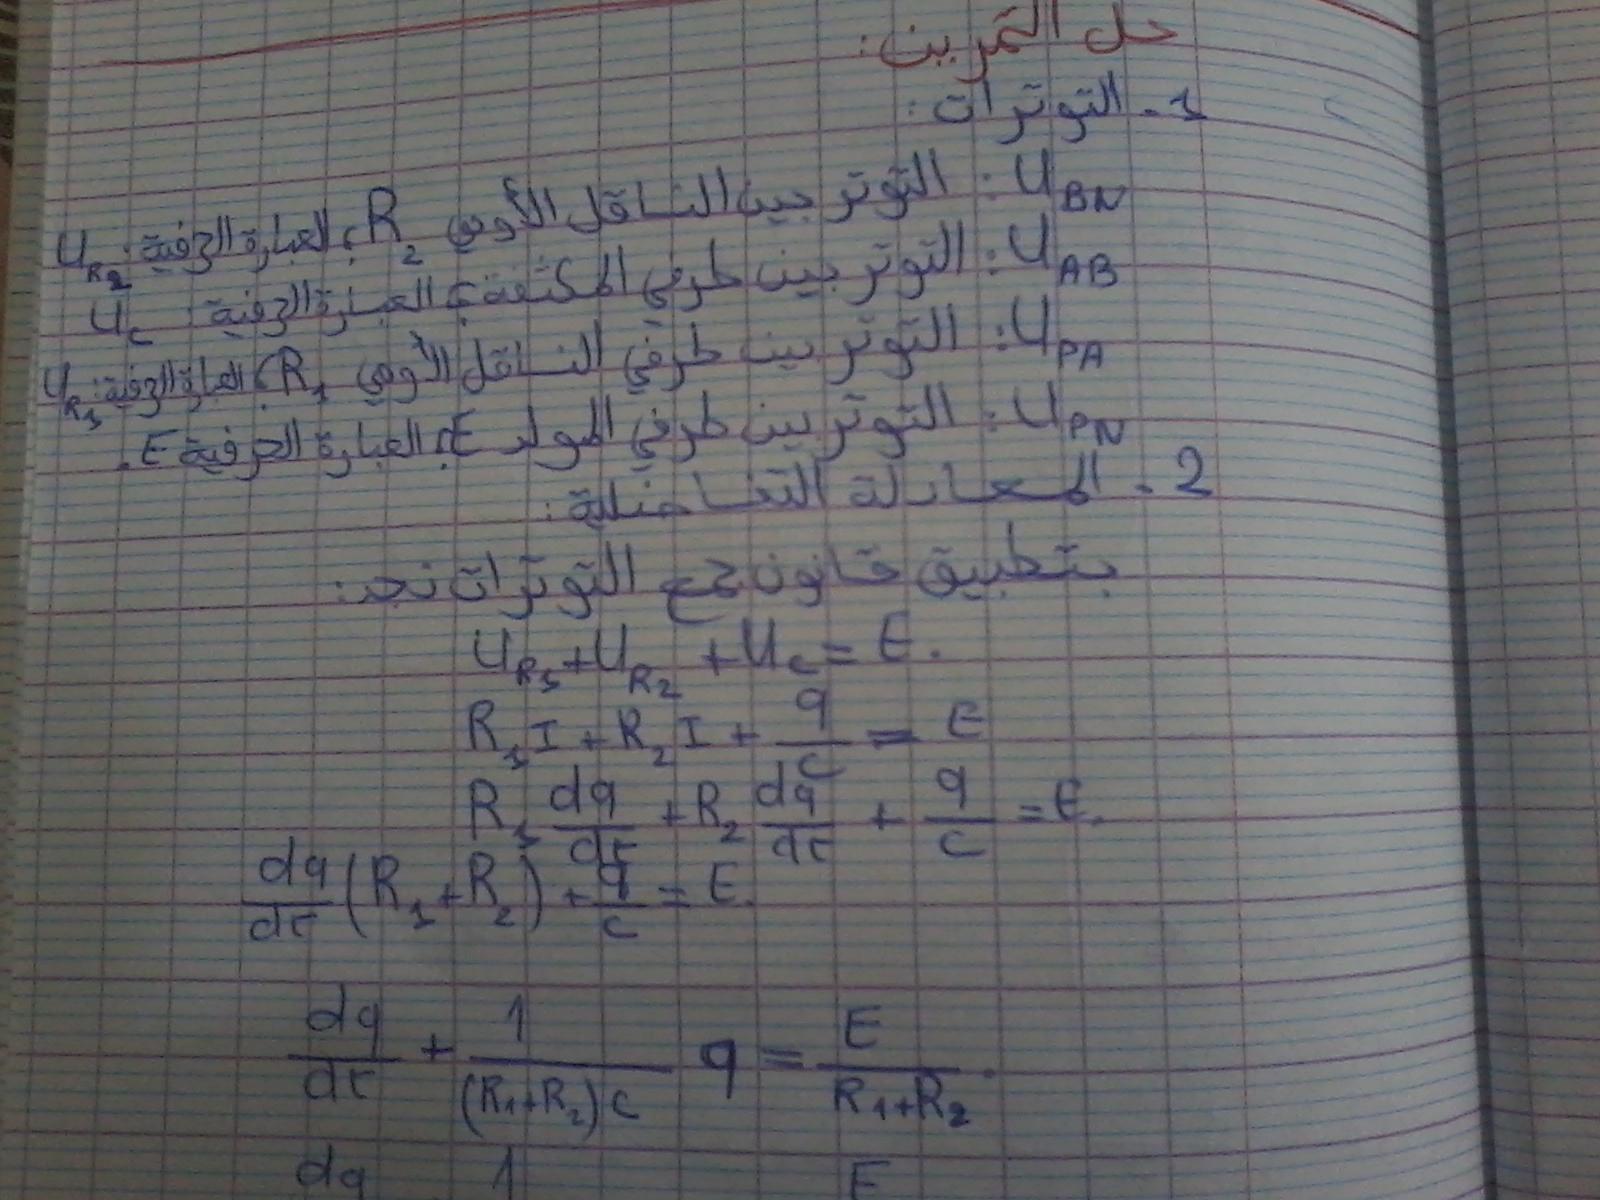 حل التمرين:
1- التوترات:
U_BN: التوتر بين الناقل الأومي R_2، العبارة الحرفية: U_R2
U_AB: التوتر بين طرفي المكثفة، العبارة الحرفية: U_C
U_PA: التوتر بين طرفي الناقل الأومي R_1، العبارة الحرفية: U_R1
U_PN: التوتر بين طرفي المولد E، العبارة الحرفية E.
2- المعادلة التفاضلية:
بتطبيق قانون جمع التوترات نجد:
U_R1 + U_R2 + U_C = E.
R_1 I + R_2 I + q/C = E
R_1 dq/dt + R_2 dq/dt + q/C = E.
dq/dt (R_1 + R_2) + q/C = E.
dq/dt + 1/((R_1+R_2)C) q = E/(R_1+R_2).
dq 1 E